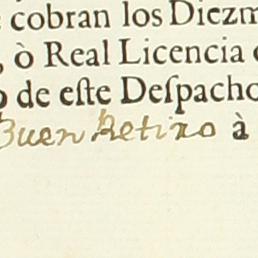 cobran los Diezm
, ò Real Licencia
o de eſte Deſpacho
Buen Retiro à